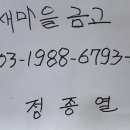 새마을 금고
03-1988-6793-
정 종 열